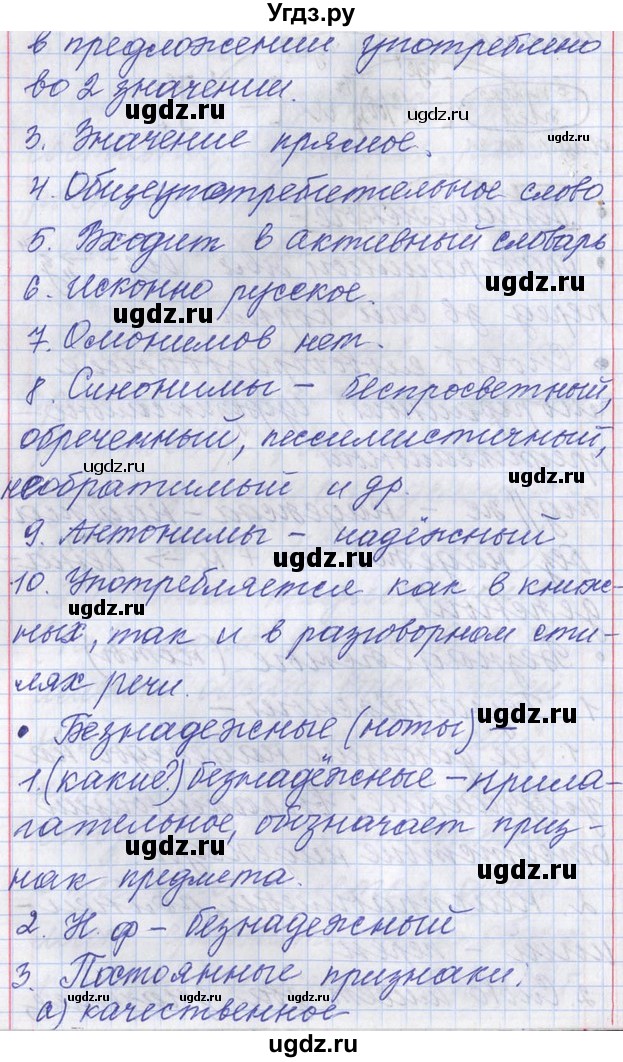 Угдз.ру
в предложении употреблено
во 2 значении.
ugdz.ru
ugdz.ru
3. Значение прямое.
ugdz.ru
4. Общеупотребительное слово
ugdz.ru
5. Входит в активный словарь
ugdz.ru
6. Исконно русское.
ugdz.ru
7. Омонимов нет.
8. Синонимы – беспросветный,
ugdz.ru
обреченный, пессимистичный,
ugdz.ru
ugdz.ru
необратимый и др.
9. Антонимы – надёжный
ugdz.ru
10. Употребляется как в книж-
ugdz.ru
ных, так и в разговорном сти-
ugdz.ru
лях речи.
ugdz.ru
• Безнадежные (ноты) –
1. (какие?) безнадёжные – прила-
гательное, обозначает приз-
ugdz.ru
нак предмета.
ugdz.ru
2. Н. ф – безнадежный
ugdz.ru
3. Постоянные признаки:
ugdz.ru
а) качественное
Угдз.ру